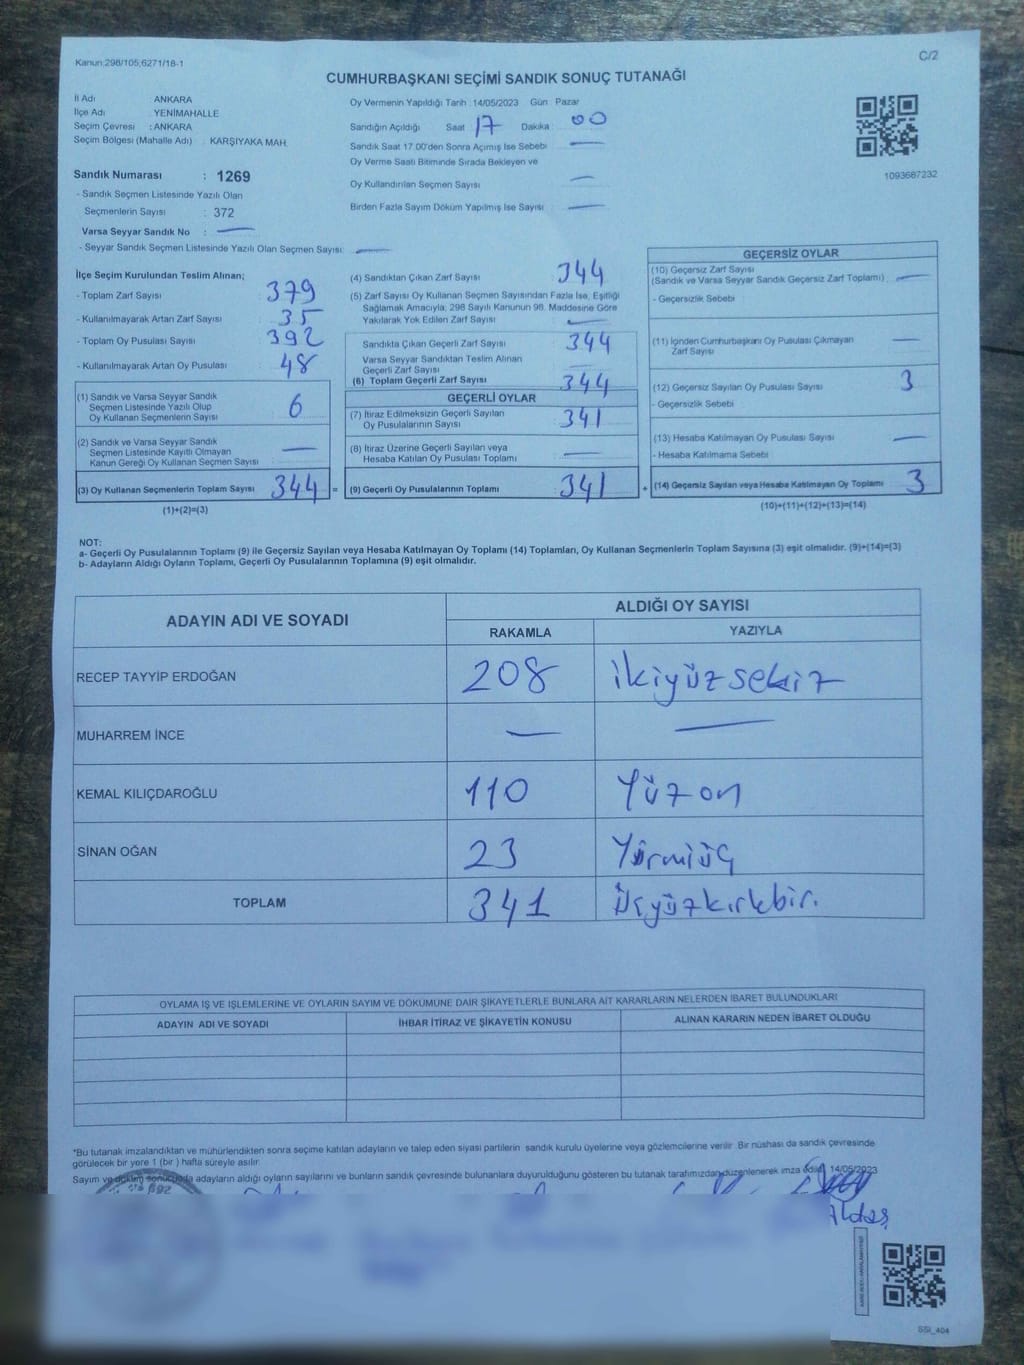 Kanun;298/105;6271/18-1
C/2
CUMHURBAŞKANI SEÇİMİ SANDIK SONUÇ TUTANAĞI
İl Adı ANKARA
İlçe Adı YENİMAHALLE
Seçim Çevresi : ANKARA
Seçim Bölgesi (Mahalle Adı) : KARŞIYAKA MAH.
Sandık Numarası : 1269
- Sandık Seçmen Listesinde Yazılı Olan
Seçmenlerin Sayısı : 372
Varsa Seyyar Sandık No : —
- Seyyar Sandık Seçmen Listesinde Yazılı Olan Seçmen Sayısı: —
Oy Vermenin Yapıldığı Tarih : 14/05/2023 Gün : Pazar
Sandığın Açıldığı Saat : 17 Dakika : 00
Sandık Saat 17.00'den Sonra Açımış İse Sebebi : —
Oy Verme Saati Bitiminde Sırada Bekleyen ve
Oy Kullandırılan Seçmen Sayısı —
Birden Fazla Sayım Döküm Yapılmış İse Sayısı : —
1093687232
İlçe Seçim Kurulundan Teslim Alınan;
- Toplam Zarf Sayısı 379
- Kullanılmayarak Artan Zarf Sayısı : 35
- Toplam Oy Pusulası Sayısı 392
- Kullanılmayarak Artan Oy Pusulası : 48
(1) Sandık ve Varsa Seyyar Sandık
Seçmen Listesinde Yazılı Olup
Oy Kullanan Seçmenlerin Sayısı 6
(2) Sandık ve Varsa Seyyar Sandık
Seçmen Listesinde Kayıtlı Olmayan
Kanun Gereği Oy Kullanan Seçmen Sayısı —
(3) Oy Kullanan Seçmenlerin Toplam Sayısı 344 =
(1)+(2)=(3)
(4) Sandıktan Çıkan Zarf Sayısı 344
(5) Zarf Sayısı Oy Kullanan Seçmen Sayısından Fazla İse, Eşitliği
Sağlamak Amacıyla, 298 Sayılı Kanunun 98. Maddesine Göre
Yakılarak Yok Edilen Zarf Sayısı —
Sandıkta Çıkan Geçerli Zarf Sayısı 344
Varsa Seyyar Sandıktan Teslim Alınan
Geçerli Zarf Sayısı
(6) Toplam Geçerli Zarf Sayısı 344
GEÇERLİ OYLAR
(7) İtiraz Edilmeksizin Geçerli Sayılan
Oy Pusulalarının Sayısı 341
(8) İtiraz Üzerine Geçerli Sayılan veya
Hesaba Katılan Oy Pusulası Toplamı —
(9) Geçerli Oy Pusulalarının Toplamı 341 +
GEÇERSİZ OYLAR
(10) Geçersiz Zarf Sayısı
(Sandık ve Varsa Seyyar Sandık Geçersiz Zarf Toplamı) : —
- Geçersizlik Sebebi
(11) İçinden Cumhurbaşkanı Oy Pusulası Çıkmayan
Zarf Sayısı —
(12) Geçersiz Sayılan Oy Pusulası Sayısı 3
- Geçersizlik Sebebi
(13) Hesaba Katılmayan Oy Pusulası Sayısı —
- Hesaba Katılmama Sebebi
(14) Geçersiz Sayılan veya Hesaba Katılmayan Oy Toplamı 3
(10)+(11)+(12)+(13)=(14)
NOT:
a- Geçerli Oy Pusulalarının Toplamı (9) ile Geçersiz Sayılan veya Hesaba Katılmayan Oy Toplamı (14) Toplamları, Oy Kullanan Seçmenlerin Toplam Sayısına (3) eşit olmalıdır. (9)+(14)=(3)
b- Adayların Aldığı Oyların Toplamı, Geçerli Oy Pusulalarının Toplamına (9) eşit olmalıdır.
ADAYIN ADI VE SOYADI
ALDIĞI OY SAYISI
RAKAMLA YAZIYLA
RECEP TAYYİP ERDOĞAN 208 ikiyüzsekiz
MUHARREM İNCE — —
KEMAL KILIÇDAROĞLU 110 Yüzon
SİNAN OĞAN 23 Yirmiüç
TOPLAM 341 üçyüzkırkbir.
OYLAMA İŞ VE İŞLEMLERİNE VE OYLARIN SAYIM VE DÖKÜMÜNE DAİR ŞİKAYETLERLE BUNLARA AİT KARARLARIN NELERDEN İBARET BULUNDUKLARI
ADAYIN ADI VE SOYADI İHBAR İTİRAZ VE ŞİKAYETİN KONUSU ALINAN KARARIN NEDEN İBARET OLDUĞU
*Bu tutanak imzalandıktan ve mühürlendikten sonra seçime katılan adayların ve talep eden siyasi partilerin sandık kurulu üyelerine veya gözlemcilerine verilir. Bir nüshası da sandık çevresinde
görülecek bir yere 1 (bir ) hafta süreyle asılır.
Sayım ve döküm sonucunda adayların aldığı oyların sayılarını ve bunların sandık çevresinde bulunanlara duyurulduğunu gösteren bu tutanak tarafımızdan düzenlenerek imza edildi. 14/05/2023
Aldaş
SSİ_404